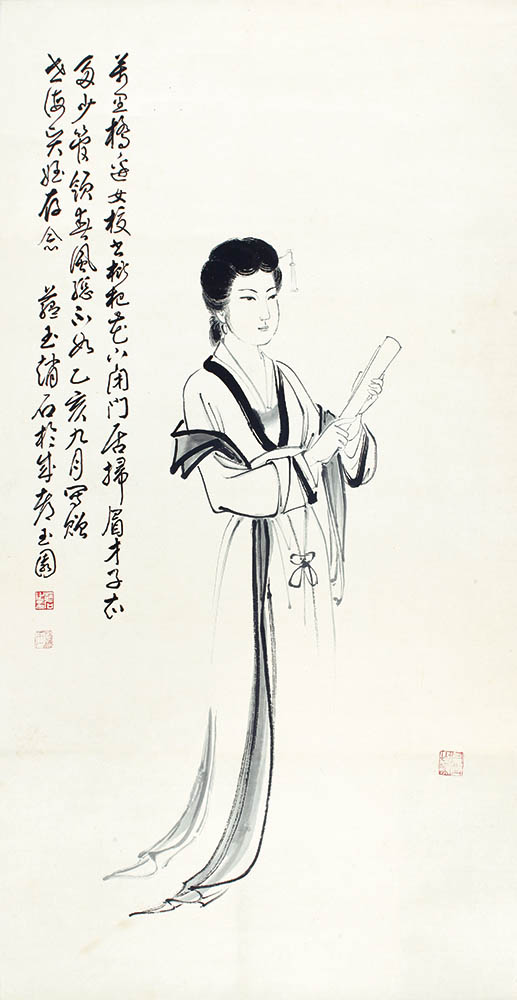 萬里橋邊女校書枇杷花下閉門居掃眉才子知
多少管領春風總不如乙亥九月寫贈
海賢姪存念 蘊玉趙石於成都玉園